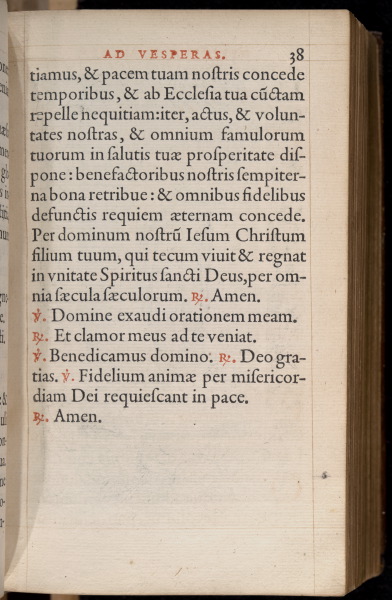 AD VESPERAS. 38
tiamus, & pacem tuam noſtris concede
temporibus, & ab Eccleſia tua cūctam
repelle nequitiam: iter, actus, & volun-
tates noſtras, & omnium famulorum
tuorum in ſalutis tuæ proſperitate diſ-
pone: benefactoribus noſtris ſempiter-
na bona retribue: & omnibus fidelibus
defunctis requiem æternam concede.
Per dominum noſtrū Ieſum Chriſtum
filium tuum, qui tecum viuit & regnat
in vnitate Spiritus ſancti Deus, per om-
nia ſæcula ſæculorum. ℟. Amen.
℣. Domine exaudi orationem meam.
℟. Et clamor meus ad te veniat.
℣. Benedicamus domino. ℟. Deo gra-
tias. ℣. Fidelium animæ per miſericor-
diam Dei requieſcant in pace.
℟. Amen.